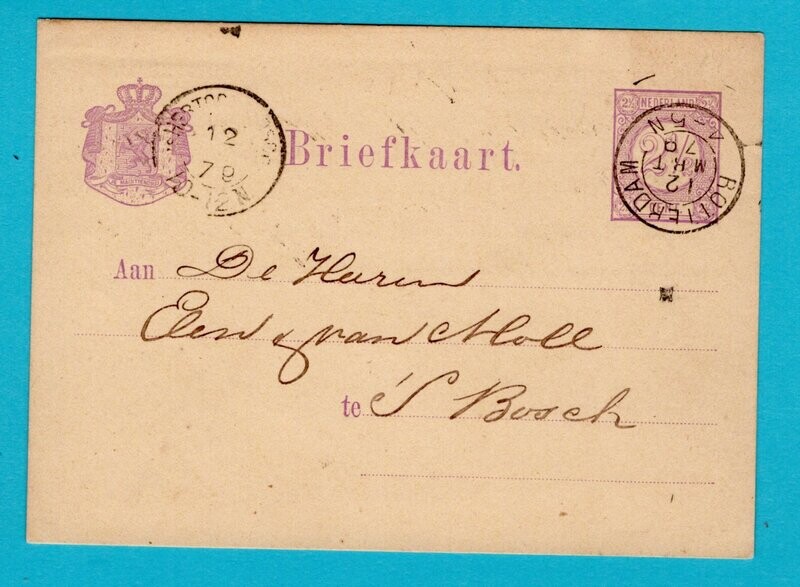 Briefkaart.
NEDERLAND
2½
ROTTERDAM
12
MRT
78
4-5N
12
79
-12N
Aan De Heeren
Een & van Moll
te 's Bosch